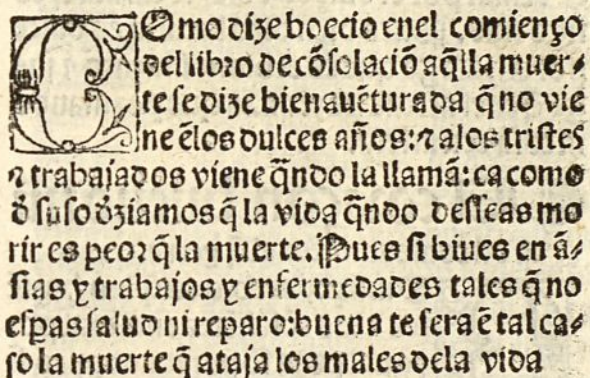 COmo dize boecio enel comienço
del libro de cõsolaciõ aq̃lla muer⸗
te se dize bienauẽturada q̃ no vie
ne ẽlos dulces años:⁊ alos tristes
⁊ trabajados viene q̃ndo la llamã: ca como
d̃ suso dziamos q̃ la vida q̃ndo desseas mo
rir es peor q̃ la muerte. Pues si biues en ã⸗
sias y trabajos y enfermedades tales q̃ no
espas salud ni reparo: buena te sera ẽ tal ca⸗
so la muerte q̃ ataja los males dela vida